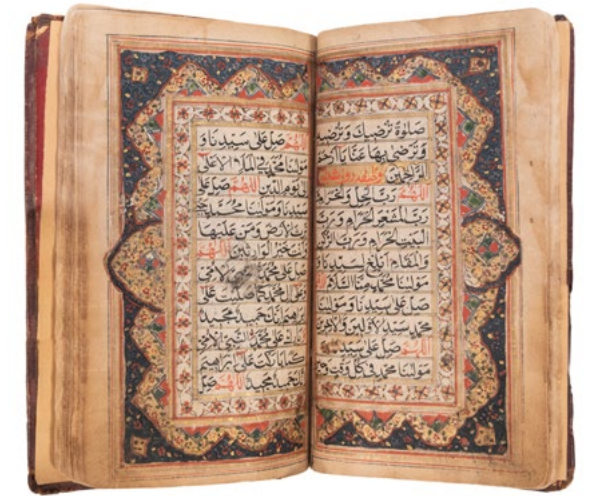 صلوة ترضيك وترضيه
وترضى بها عنا يا ارحم
الراحمين
اللهم رب الحل والحرام
رب المشعر الحرام ورب
البيت الحرام ورب الركن
والمقام ابلغ لسيدنا و
مولنا محمد منا السلام
صل على سيدنا و مولنا
محمد سيد الاولين والاخرين
اللهم صل على سيدنا
مولنا محمد في كل وقت و
اللهم صل على سيدنا و
مولنا محمد في الملا الاعلى
الى يوم الدين اللهم صل على
سيدنا و مولنا محمد حتى
ترث الارض ومن عليها
وانت خير الوارثين اللهم
صل على محمد النبي الامي
وعلى ال محمد كما صليت على
ابراهيم انك حميد مجيد
وبارك على محمد النبي الامي
كما باركت على ابراهيم
انك حميد مجيد اللهم صل